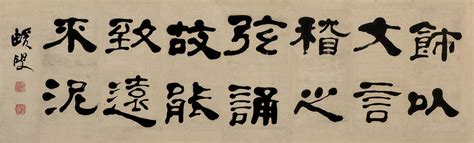 飾以
文言
稽心
弦誦
故能
致遠
不泥
蝯叟